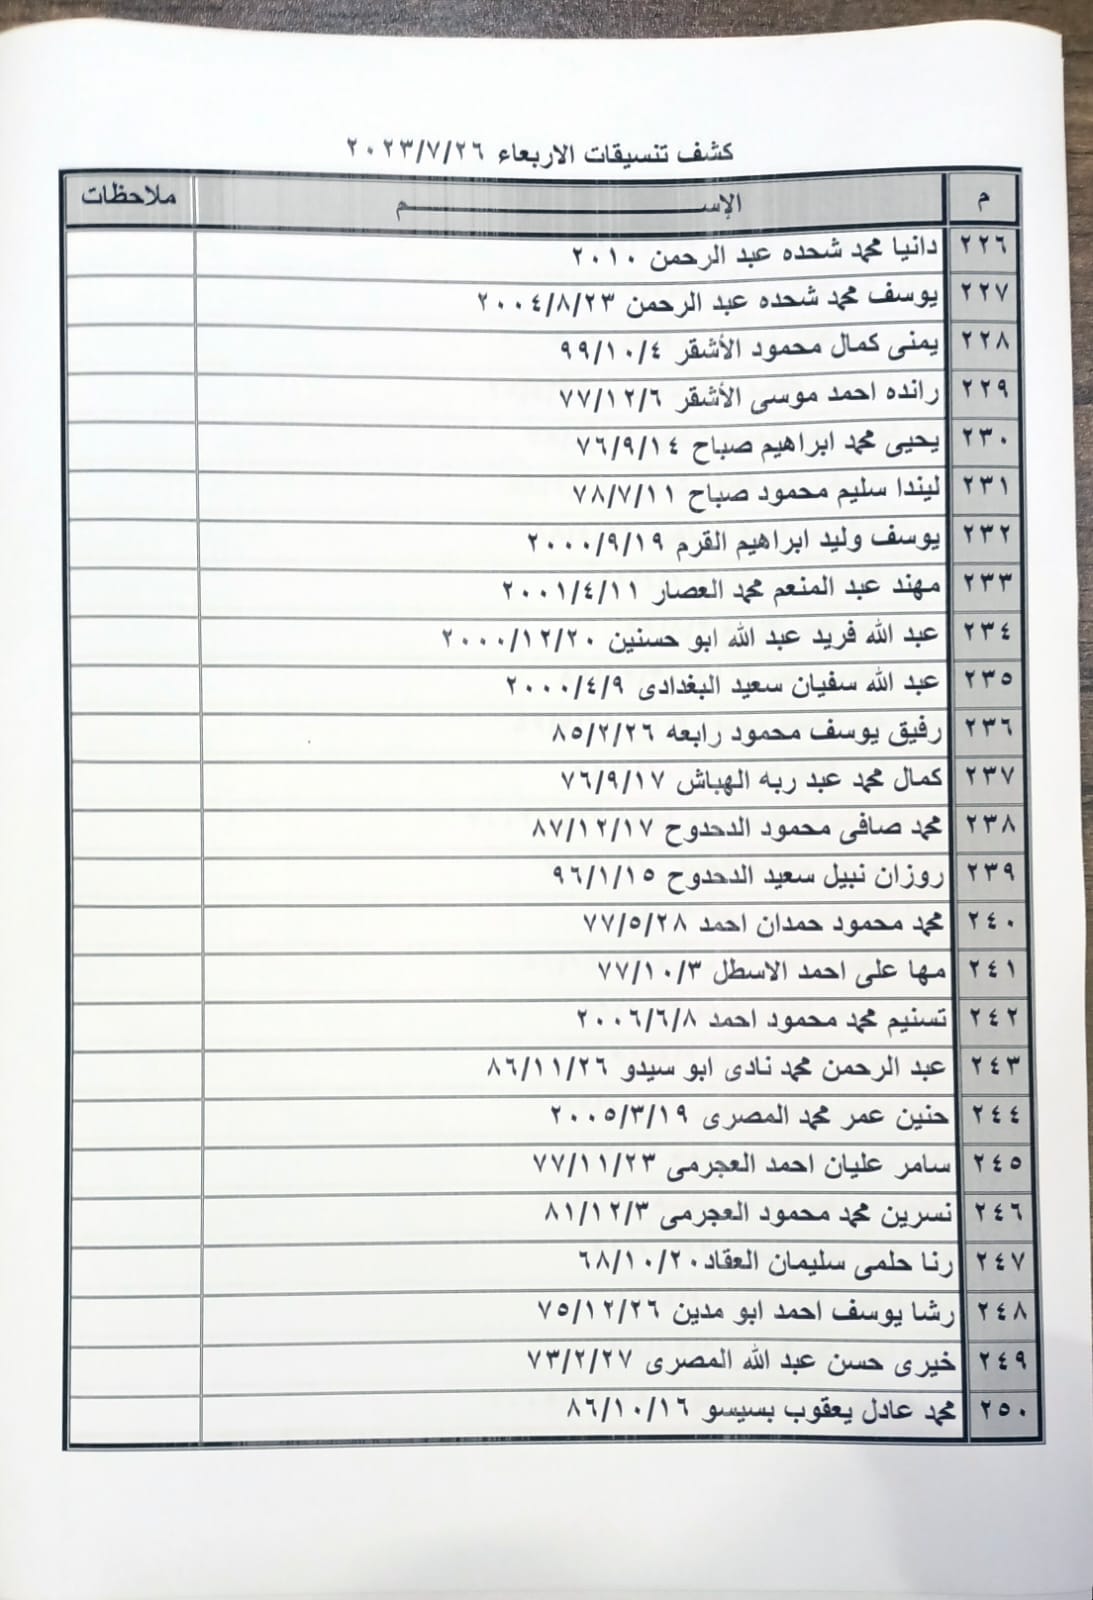 كشف تنسيقات الاربعاء ٢٠٢٣/٧/٢٦
م الإســـــــــــم ملاحظات
٢٢٦ دانيا محمد شحده عبد الرحمن ٢٠١٠
٢٢٧ يوسف محمد شحده عبد الرحمن ٢٠٠٤/٨/٢٣
٢٢٨ يمنى كمال محمود الأشقر ٩٩/١٠/٤
٢٢٩ رانده احمد موسى الأشقر ٧٧/١٢/٦
٢٣٠ يحيى محمد ابراهيم صباح ٧٦/٩/١٤
٢٣١ ليندا سليم محمود صباح ٧٨/٧/١١
٢٣٢ يوسف وليد ابراهيم القرم ٢٠٠٠/٩/١٩
٢٣٣ مهند عبد المنعم محمد العصار ٢٠٠١/٤/١١
٢٣٤ عبد الله فريد عبد الله ابو حسنين ٢٠٠٠/١٢/٢٠
٢٣٥ عبد الله سفيان سعيد البغدادى ٢٠٠٠/٤/٩
٢٣٦ رفيق يوسف محمود رابعه ٨٥/٢/٢٦
٢٣٧ كمال محمد عبد ربه الهباش ٧٦/٩/١٧
٢٣٨ محمد صافى محمود الدحدوح ٨٧/١٢/١٧
٢٣٩ روزان نبيل سعيد الدحدوح ٩٦/١/١٥
٢٤٠ محمد محمود حمدان احمد ٧٧/٥/٢٨
٢٤١ مها على احمد الاسطل ٧٧/١٠/٣
٢٤٢ تسنيم محمد محمود احمد ٢٠٠٦/٦/٨
٢٤٣ عبد الرحمن محمد نادى ابو سيدو ٨٦/١١/٢٦
٢٤٤ حنين عمر محمد المصرى ٢٠٠٥/٣/١٩
٢٤٥ سامر عليان احمد العجرمى ٧٧/١١/٢٣
٢٤٦ نسرين محمد محمود العجرمى ٨١/١٢/٣
٢٤٧ رنا حلمى سليمان العقاد٦٨/١٠/٢٠
٢٤٨ رشا يوسف احمد ابو مدين ٧٥/١٢/٢٦
٢٤٩ خيرى حسن عبد الله المصرى ٧٣/٢/٢٧
٢٥٠ محمد عادل يعقوب بسيسو ٨٦/١٠/١٦